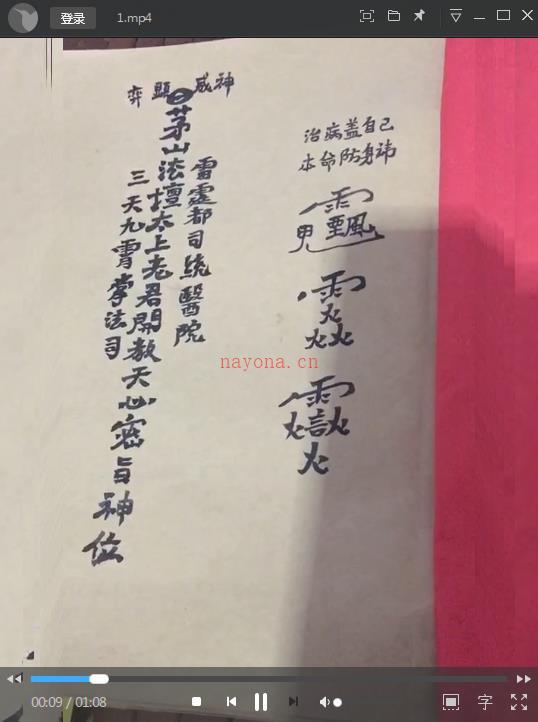 登录
1.mp4
治病盖自己
本命防身讳
弈顕威神
雷霆都司統醫院
茅山法壇太上老君開教天心密旨神位
三天九霄掌法司
nayona.cn
00:09 / 01:08
字